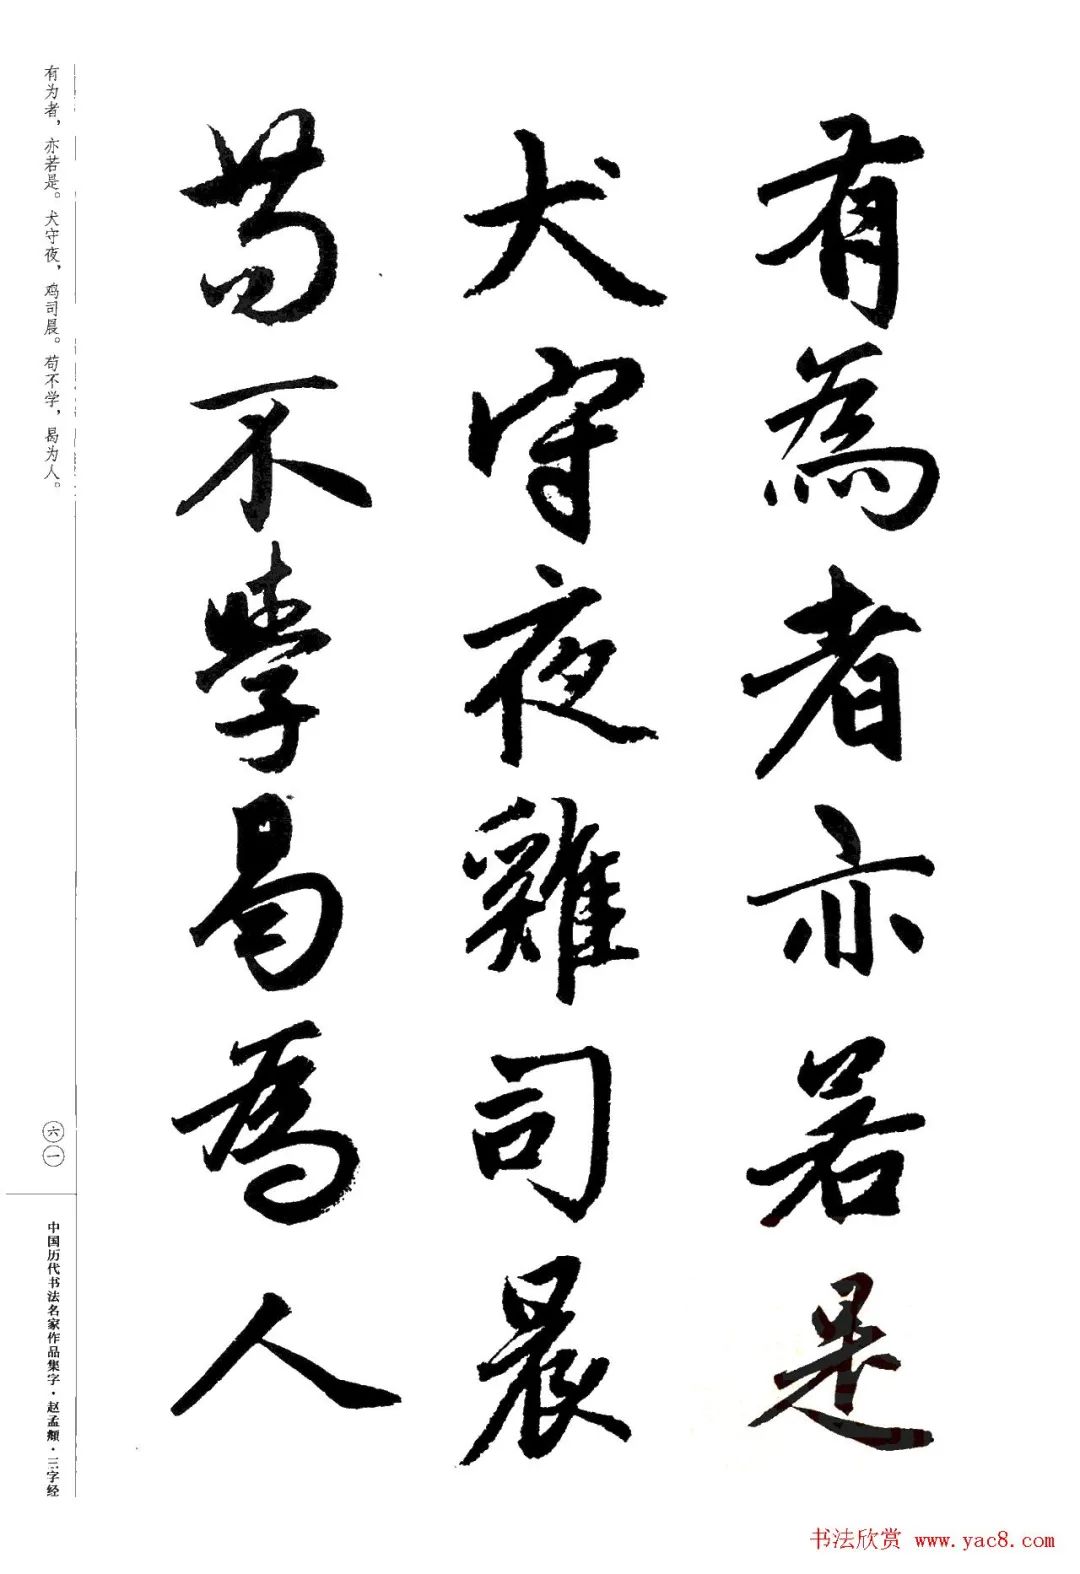 有為者亦若是
犬守夜雞司晨
苟不學曷為人
有为者，亦若是。犬守夜，鸡司晨。苟不学，曷为人。
六一
中国历代书法名家作品集字·赵孟頫·三字经
书法欣赏 www.yac8.com